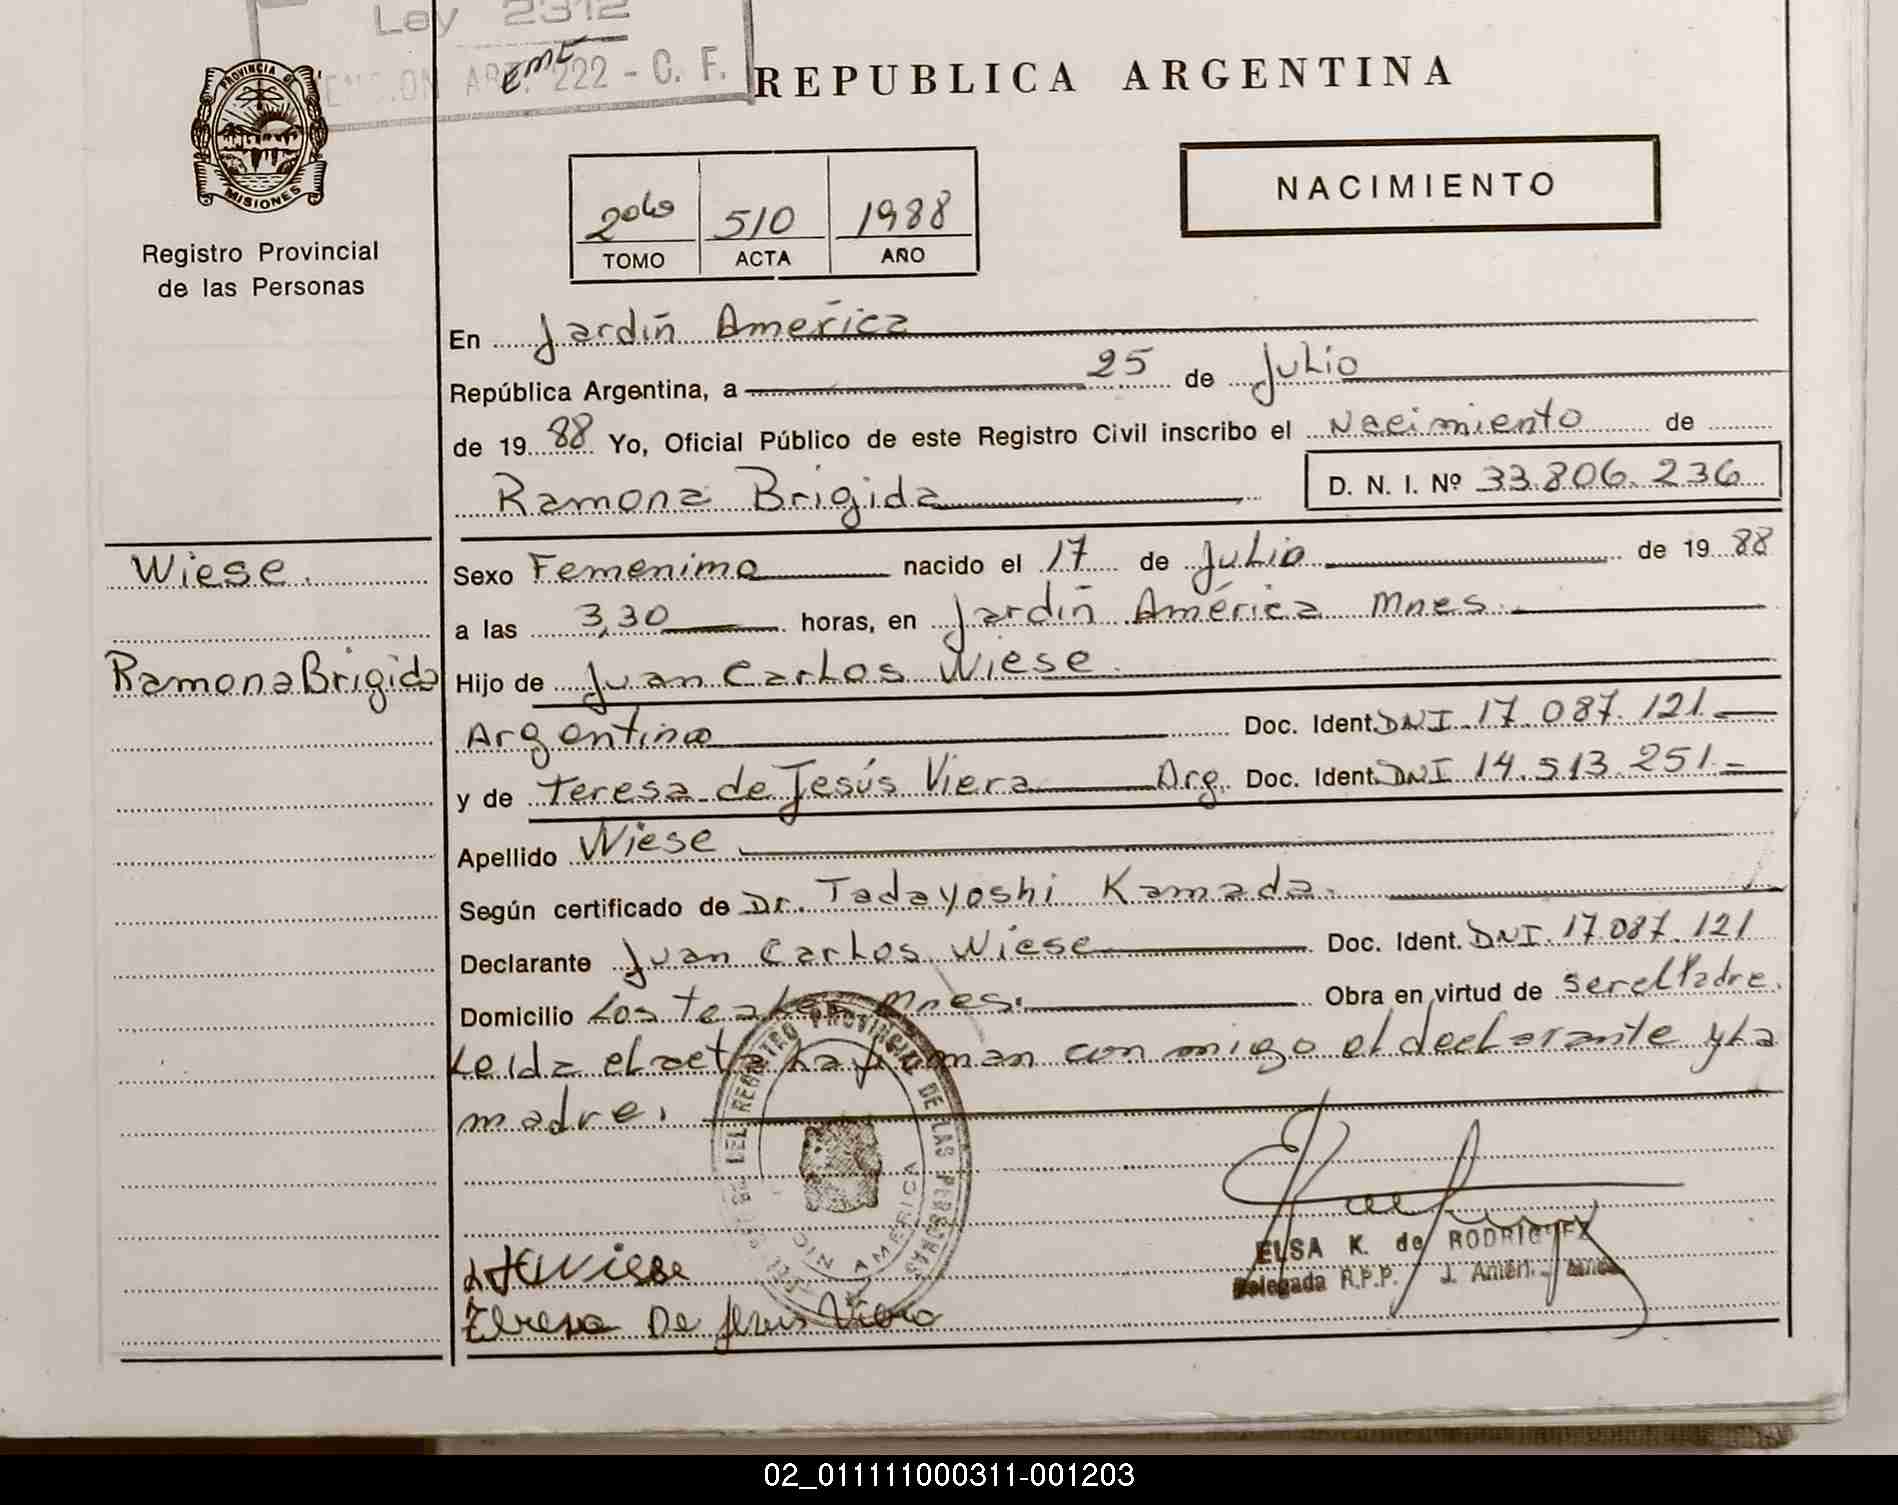 Ley 2312
ART. 222 - C. F.
REPUBLICA ARGENTINA
PROVINCIA DE
MISIONES
Registro Provincial
de las Personas
NACIMIENTO
2do 510 1988
TOMO ACTA AÑO
En Jardín América
República Argentina, a 25 de Julio
de 19 88 Yo, Oficial Público de este Registro Civil inscribo el Nacimiento de
Ramona Brigida D. N. I. Nº 33.806.236
Wiese.
Ramona Brigida
Sexo Femenino nacido el 17 de Julio de 19 88
a las 3,30 horas, en Jardín América Mnes.
Hijo de Juan Carlos Wiese.
Argentino Doc. Ident. DNI. 17.087.121
y de Teresa de Jesús Viera Arg. Doc. Ident. DNI 14.513.251.
Apellido Wiese
Según certificado de Dr. Tadayoshi Kamada.
Declarante Juan Carlos Wiese Doc. Ident. DNI. 17.087.121
Domicilio Los Teales Mnes. Obra en virtud de ser el Padre.
Leida el acta la firman con migo el declarante y La
madre.
REGISTRO PROVINCIAL DE LAS PERSONAS
AMERICA
ELSA K. de RODRIGUEZ
Delegada R.P.P. J. Améri.
Wiese
Teresa De Jesus Viera
02_011111000311-001203